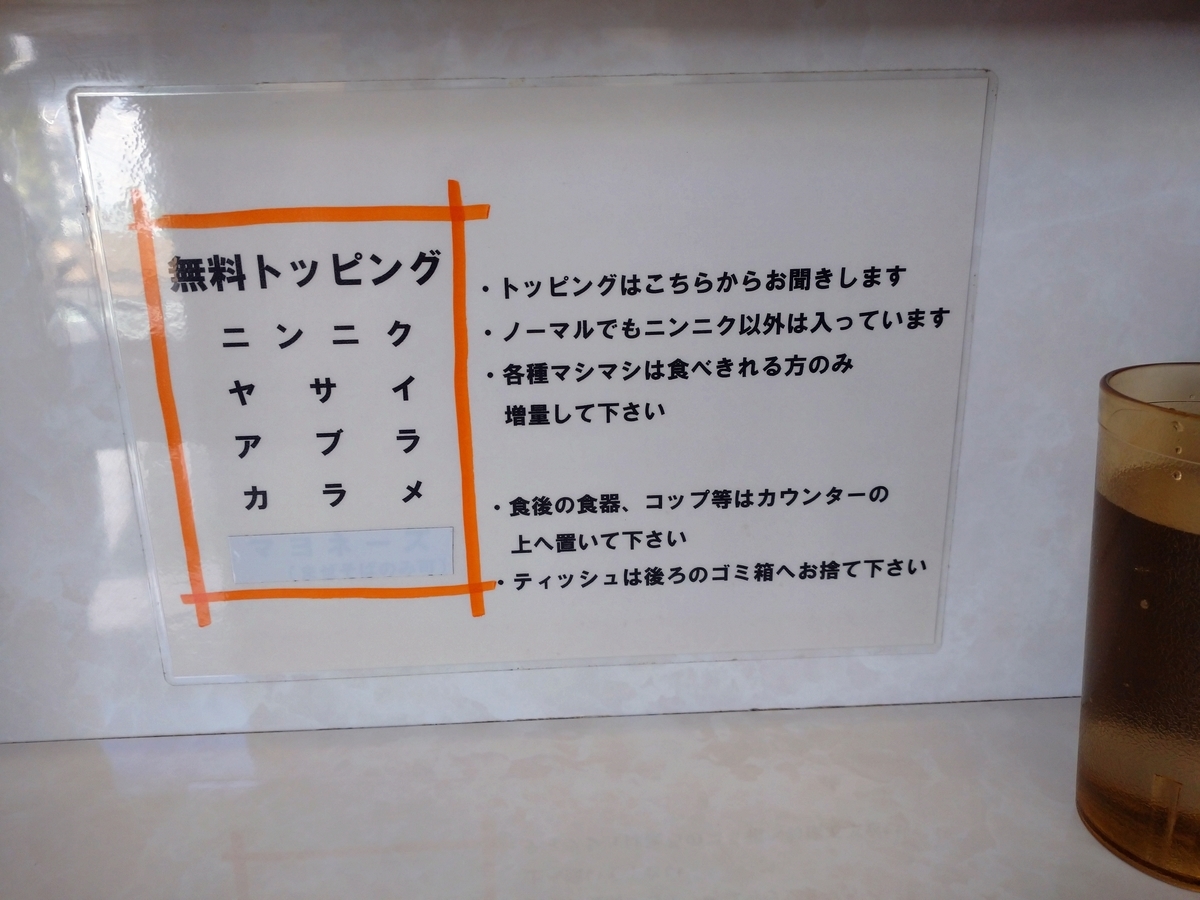 無料トッピング
ニンニク
ヤサイ
アブラ
カラメ
・トッピングはこちらからお聞きします
・ノーマルでもニンニク以外は入っています
・各種マシマシは食べきれる方のみ
増量して下さい
・食後の食器、コップ等はカウンターの
上へ置いて下さい
・ティッシュは後ろのゴミ箱へお捨て下さい